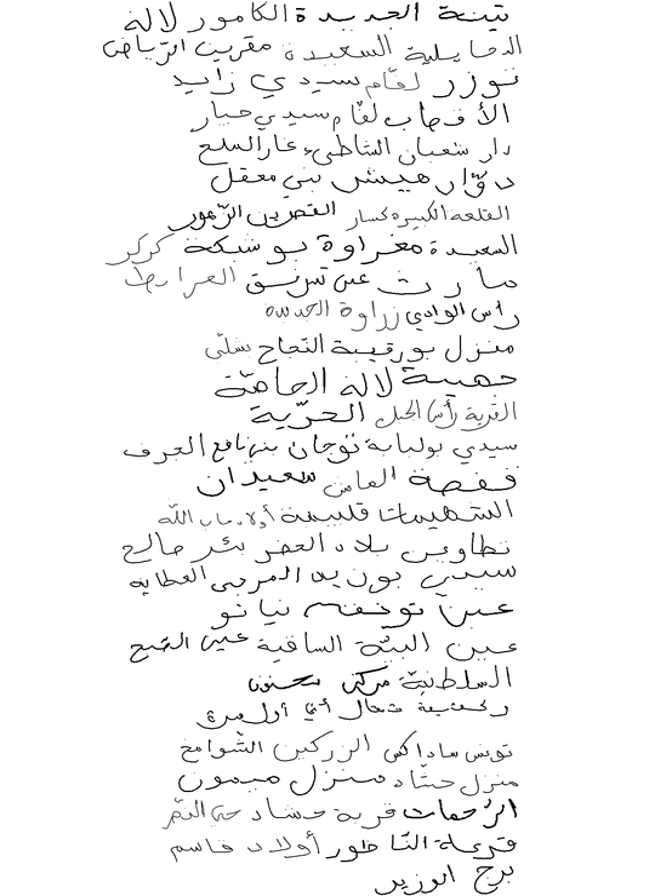 تينة الجديدة الكامور لالة
الدخايلية السعيدة مقرين الرياض
توزر لقام سيدي زايد
الأقصاب لقام سيدي جبار
دار شعبان الشاطىء غار الملح
دوّار هيشر بني معقل
القلعة الكبيرة كسار القصرين الزهور
السعيدة مغراوة بوشبكة كركر
مارث عين تبرنسق
رأس الوادي زراوة الجديدة
منزل بورقيبة النجاح بشلي
جهينة لالة الحامّة
القرية رأس الجبل الحرّية
سيدي بولبابة توجان بني نافع الجرف
قفصة سعيدان
قليبية أولاد جاب اللّه
تطاوين بلاد الحضر بئر صالح
سيدي بوزيد المرجى العطاية
عين نيانو
عين البيّة الساقية عين الصبح
السلطنيّة مركز سحنون
شمال
تونس ساداكس الزركين الشوامخ
منزل حشاد منزل ميمون
الرحمات قرية حشاد
قرعة الناظور أولاد قاسم
برج الوزير